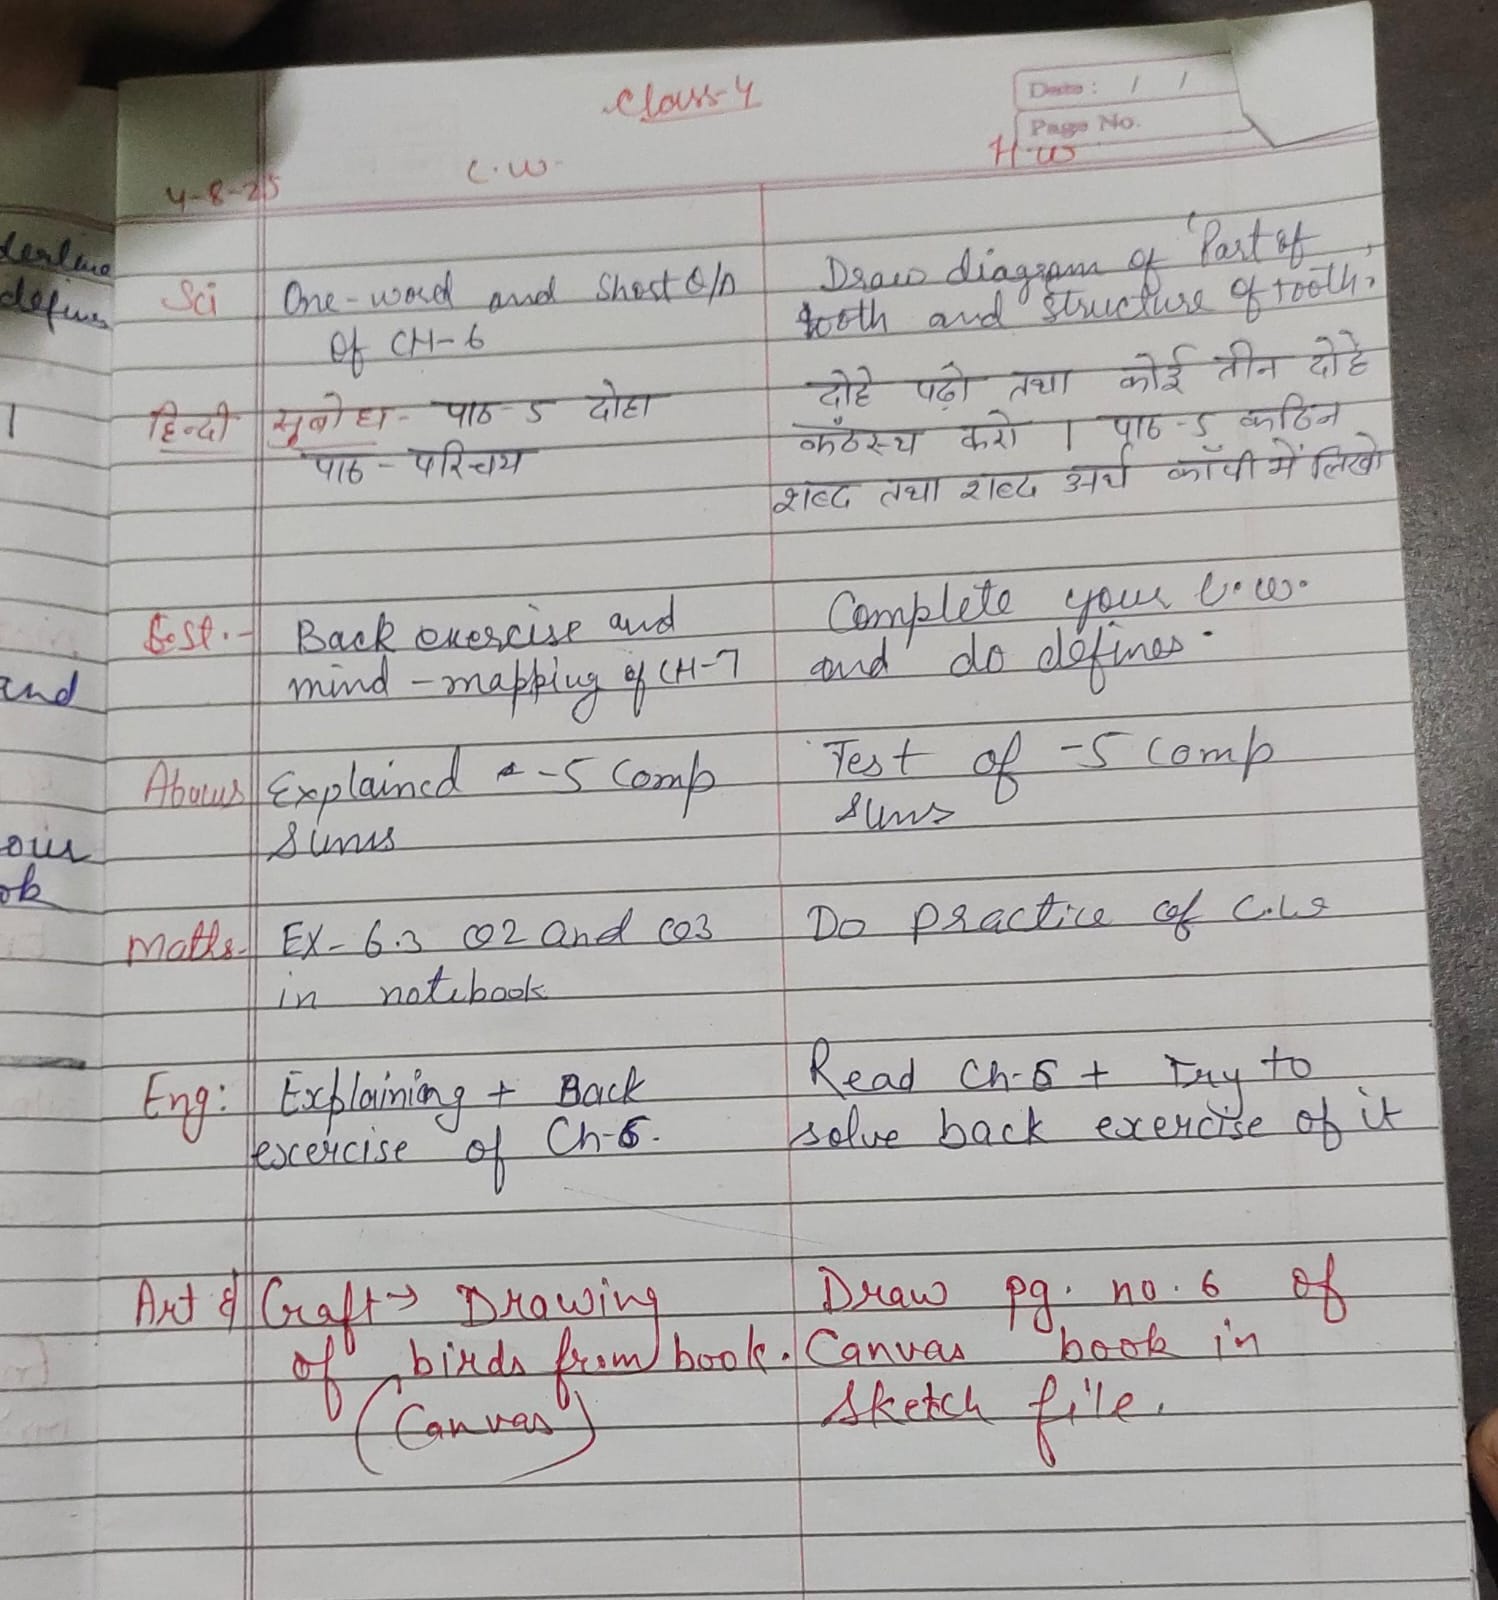 Class-4
Date: / /
Page No.
4-8-25 C.W. H.W
Sci One-word and Short Q/A Draw diagram of 'Part of
of CH-6 tooth and structure of tooth.
हिन्दी सुबोध- पाठ-5 दोहा दोहे पढ़ो तथा कोई तीन दोहे
पाठ-परिचय कंठस्थ करो । पाठ-5 कठिन
शब्द तथा शब्द अर्थ कॉपी में लिखो
Back exercise and Complete your C.W.
mind-mapping of CH-7 and do defines.
Abacus Explained -5 Comp Test of -5 Comp
Sums Sums
Maths- EX-6.3 Q2 and Q3 Do practice of C.W
in notebook
Eng: Explaining + Back Read Ch-5 + Try to
excercise of Ch-5. solve back exercise of it
Art & Craft → Drawing Draw pg. no. 6 of
of birds from book. Canvas book in
(Canvas) Sketch file.
derline
define
and
our
ok